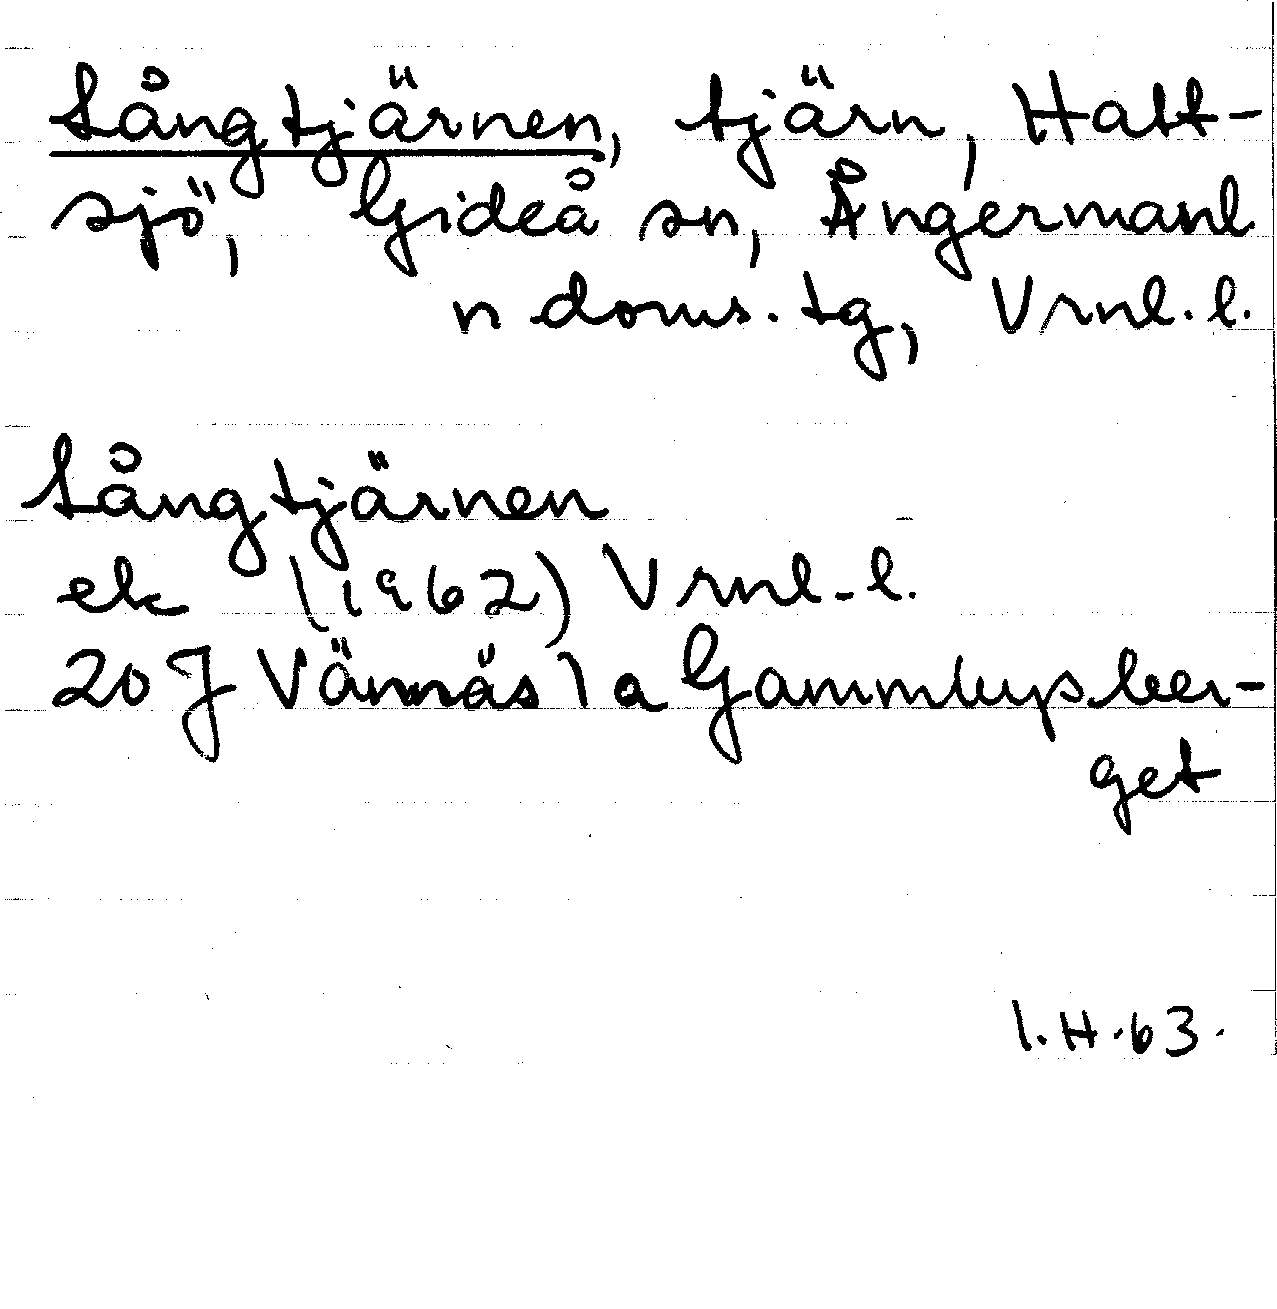 Långtjärnen, tjärn, Hatt-
sjö, Gideå sn, Ångermanl
n doms. tg, Vrnl. l.
Långtjärnen
ek (1962) Vrnl. l.
20 J Vännäs 1 a Gammtupsber-
get
I. H. 63.